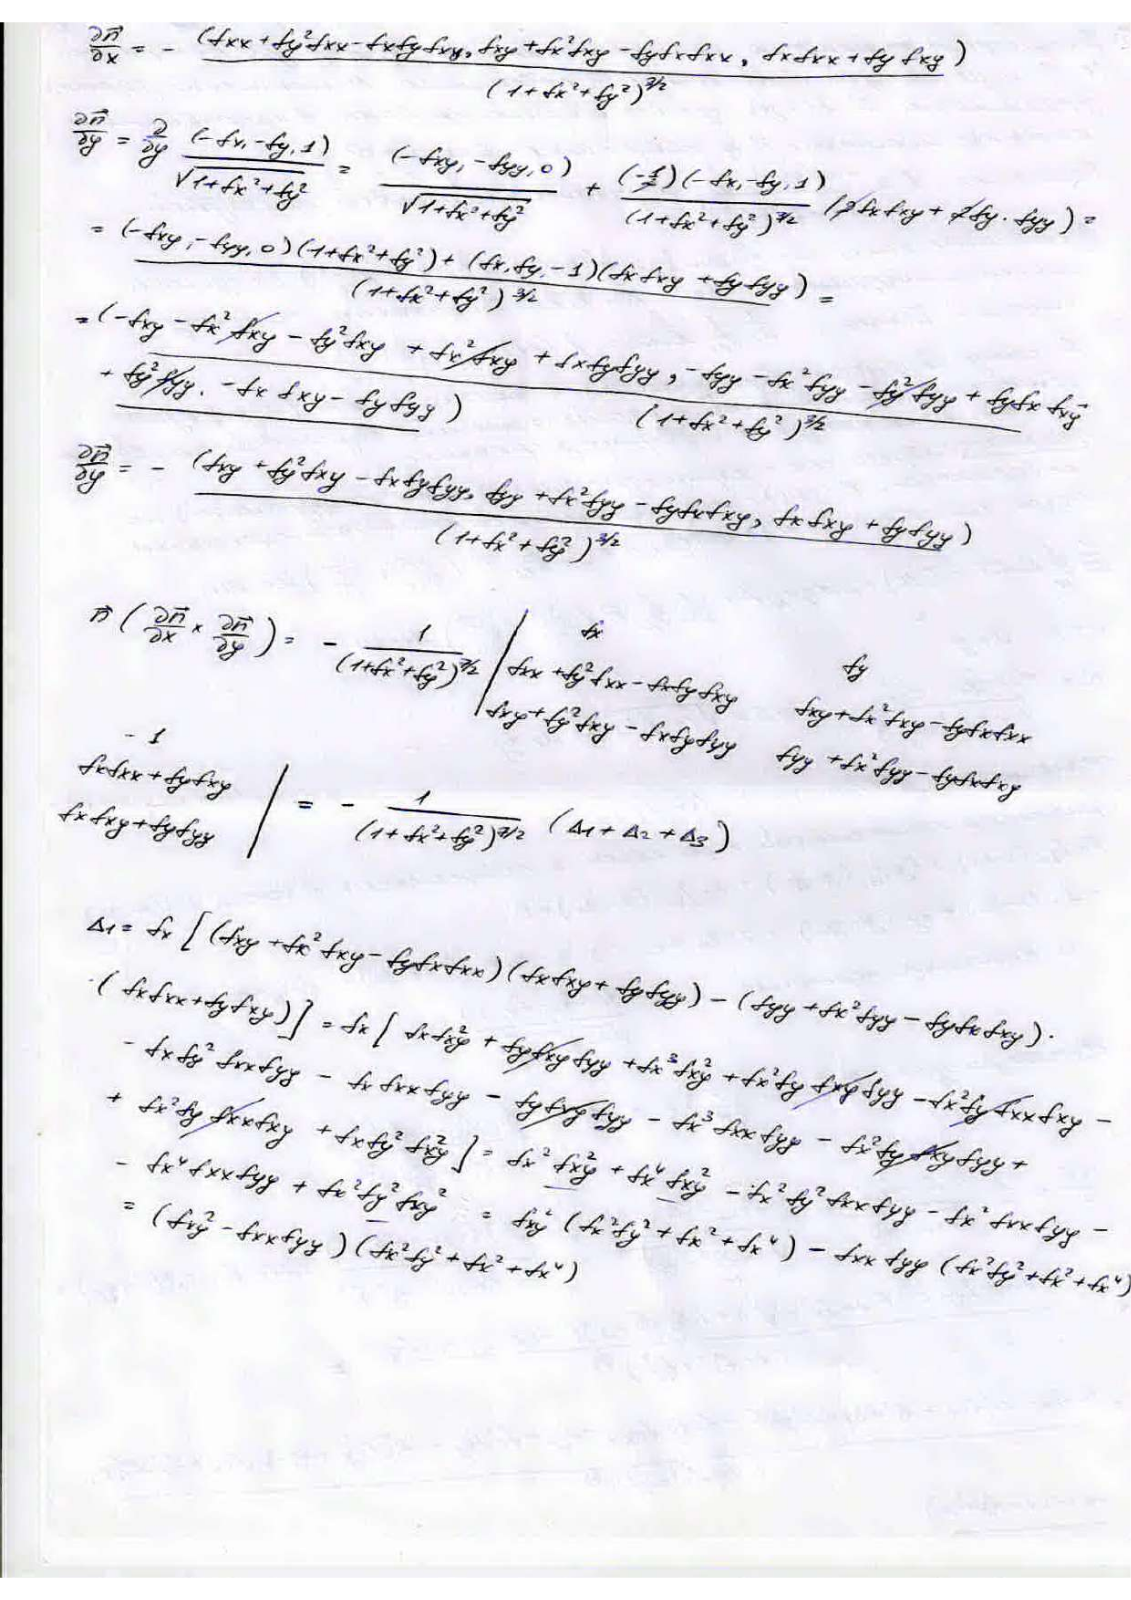 ∂n⃗/∂x = - (fxx + fy²fxx - fxfyfxy, fxy + fx²fxy - fyfxfxx, fxfxx + fy fxy) / (1+fx²+fy²)^3/2
∂n⃗/∂y = ∂/∂y (-fx, -fy, 1)/√(1+fx²+fy²) = (-fxy, -fyy, 0)/√(1+fx²+fy²) + (-1/2)(-fx, -fy, 1)/(1+fx²+fy²)^3/2 (2fxfxy + 2fy·fyy) =
= (-fxy, -fyy, 0)(1+fx²+fy²) + (fx, fy, -1)(fxfxy + fyfyy) / (1+fx²+fy²)^3/2 =
= (-fxy - fx²fxy - fy²fxy + fx²fxy + fxfyfyy, -fyy - fx²fyy - fy²fyy + fyfxfxy +
+ fy²fyy, -fx fxy - fyfyy) / (1+fx²+fy²)^3/2
∂n⃗/∂y = - (fxy + fy²fxy - fxfyfyy, fyy + fx²fyy - fyfxfxy, fxfxy + fyfyy) / (1+fx²+fy²)^3/2
n⃗ (∂n⃗/∂x × ∂n⃗/∂y) = - 1/(1+fx²+fy²)^7/2 | fx fy
fxx + fy²fxx - fxfyfxy fxy + fx²fxy - fyfxfxx
fxy + fy²fxy - fxfyfyy fyy + fx²fyy - fyfxfxy
-1
fxfxx + fyfxy
fxfxy + fyfyy | = - 1/(1+fx²+fy²)^7/2 (Δ1 + Δ2 + Δ3)
Δ1 = fx [(fxy + fx²fxy - fyfxfxx)(fxfxy + fyfyy) - (fyy + fx²fyy - fyfxfxy)·
·(fxfxx + fyfxy)] = fx [fxfxy² + fyfxyfyy + fx³fxy² + fx²fy fxyfyy - fx²fyfxxfxy -
- fxfy²fxxfyy - fx fxxfyy - fyfxyfyy - fx³fxxfyy - fx²fyfxyfyy +
+ fx²fyfxxfxy + fxfy²fxy²] = fx²fxy² + fx⁴fxy² - fx²fy²fxxfyy - fx²fxxfyy -
- fx⁴fxxfyy + fx²fy²fxy² = fxy²(fx²fy² + fx² + fx⁴) - fxx fyy (fx²fy² + fx² + fx⁴)
= (fxy² - fxxfyy)(fx²fy² + fx² + fx⁴)